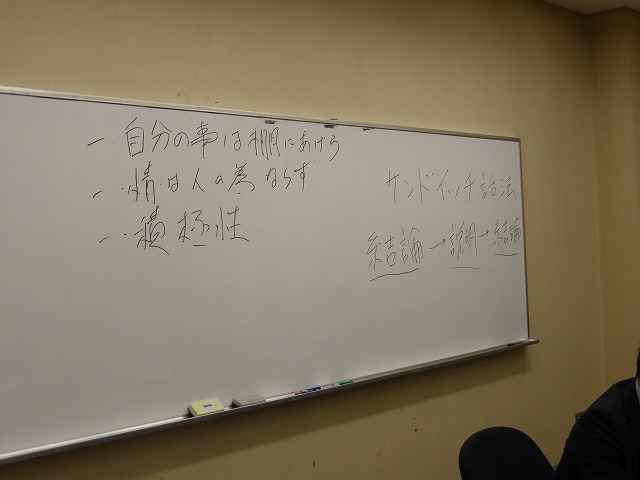 一. 自分の事は棚にあげろ
一. 情は人の為ならず
一. 積極性
サンドイッチ話法
結論→説明→結論